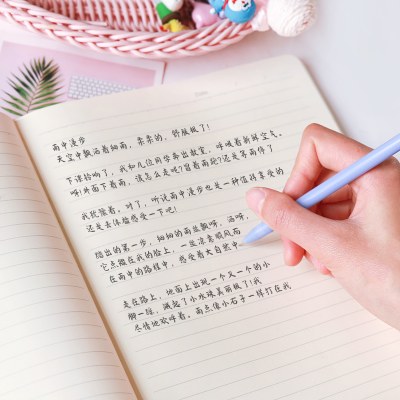 雨中漫步
天空中飘洒着细雨，柔柔的，舒服极了！
下课铃响了，我和几位同学奔出教室，呼吸着新鲜空气。
呀！外面下着雨，该怎么走呢？冒着雨跑？还是等雨停了
我犹豫着，对了，听说雨中漫步也是一种值得享受的
还是去体验感受一下吧！
踏出的第一步，细细的雨丝飘呀，洒呀，
它点缀在我的脸上，一丝凉意顺风而
在雨中的路程中，感受着大自然中
走在路上，地面上出现一个又一个的小
脚一踩，溅起了小水珠美丽极了！我
尽情地欢呼着。雨点像小石子一样打在我